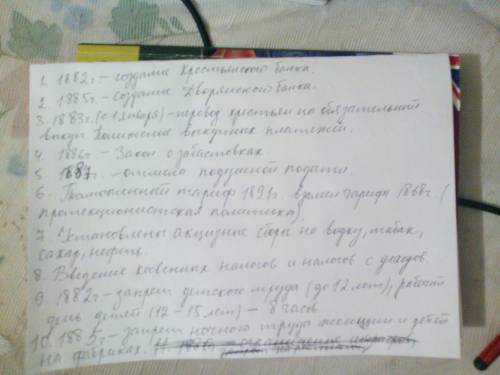 1. 1882г. – создание Крестьянского банка.
2. 1885г. – создание Дворянского банка.
3. 1883г. (с 1 января) – перевод крестьян на обязательный
выкуп. Понижение выкупных платежей.
4. 1886г. – Закон о забастовках
5. 1887г. – отмена подушной подати.
6. Таможенный тариф 1891г. тарифа 1868г. (
протекционистская политика).
7. Установлены акцизные сборы на водку, табак,
сахар, нефть.
8. Введение косвенных налогов и налогов с доходов.
9. 1882г – запрет детского труда (до 12 лет), рабочий
день детей (12 – 15 лет) – 8 часов
10. 1885г – запрет ночного труда женщин и детей
на фабриках.